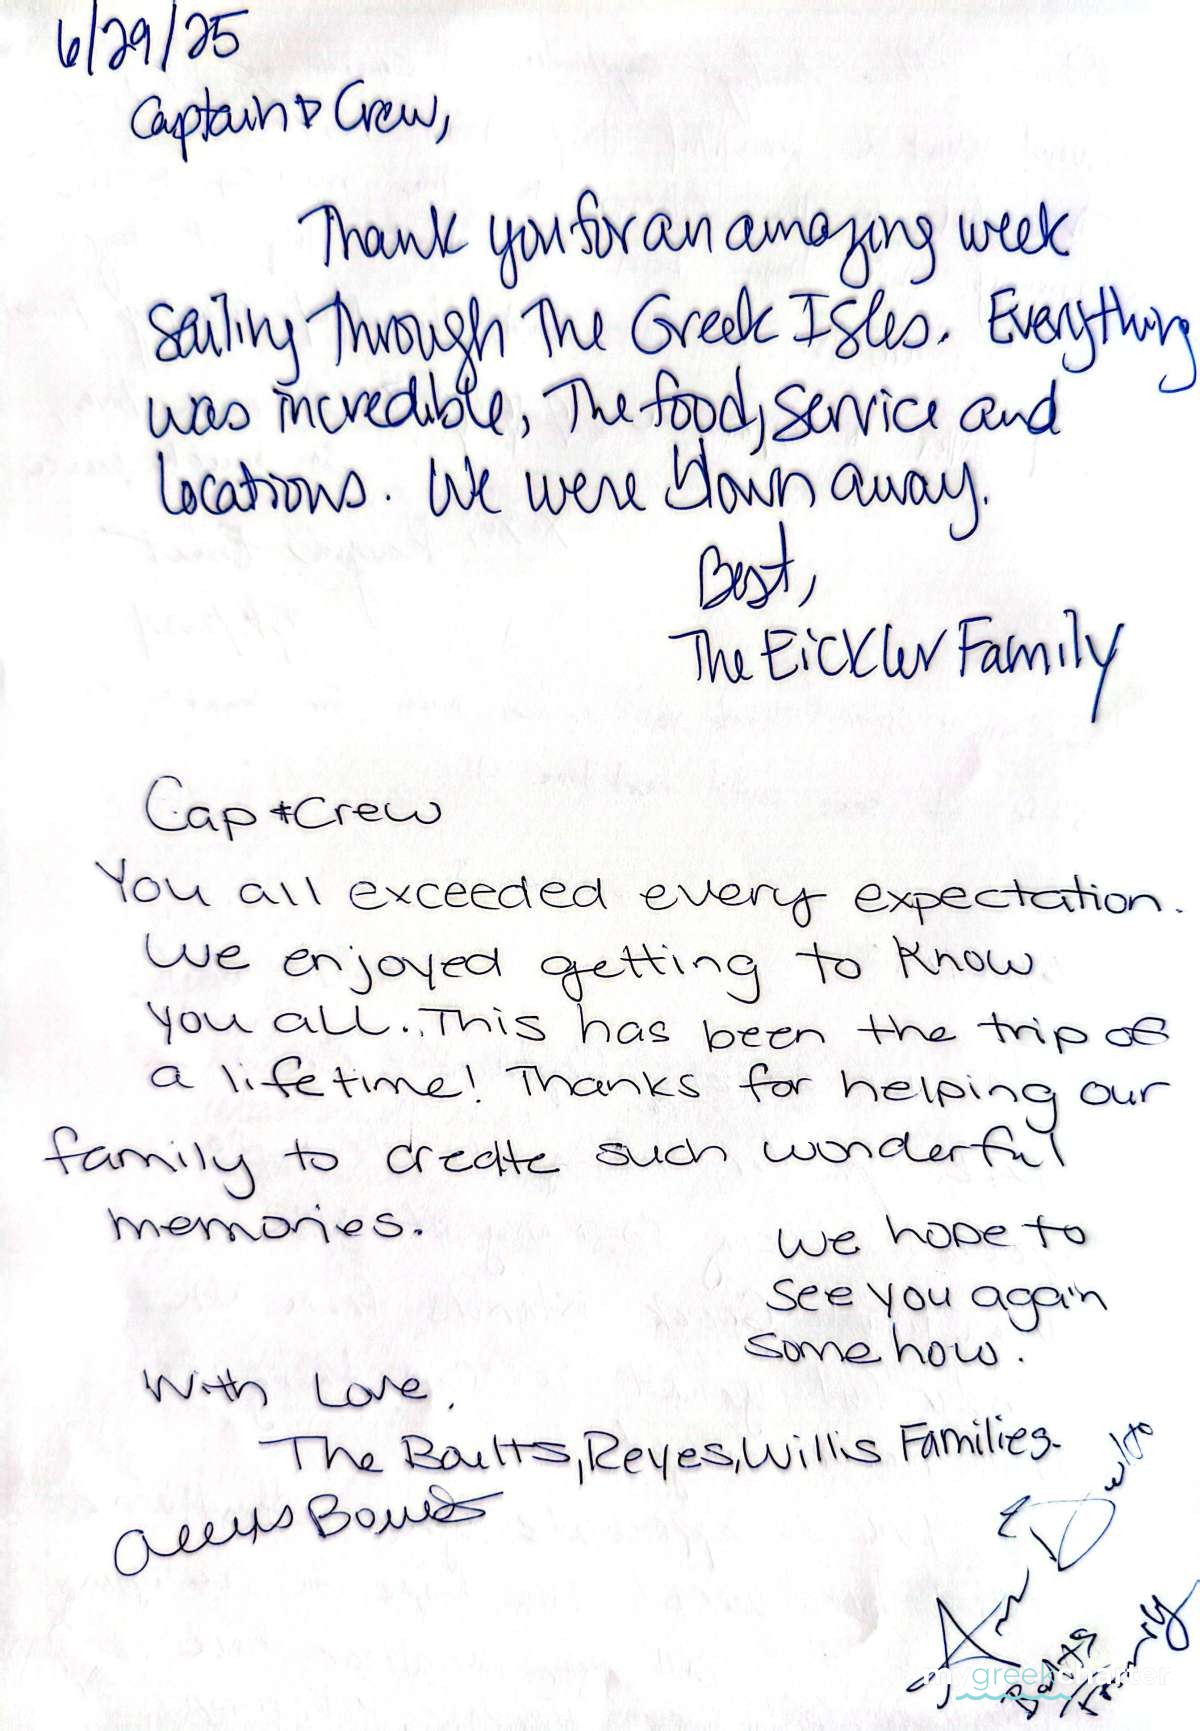 6/29/25
Captain & Crew,
Thank you for an amazing week
sailing through the Greek Isles. Everything
was incredible, The food, service and
locations. We were blown away.
Best,
The Eickler Family
Cap & Crew
You all exceeded every expectation.
We enjoyed getting to know
you all. This has been the trip of
a lifetime! Thanks for helping our
family to create such wonderful
memories.
We hope to
see you again
somehow.
With Love,
The Boults, Reyes, Willis Families.
Family
mygreekcharter